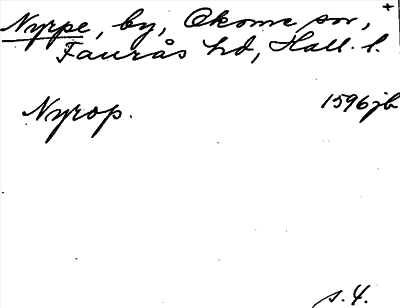 Nyrpe, by, Okome sn, +
Faurås hd, Hall. l.
Nyrop. 1596 jb
s. 4.